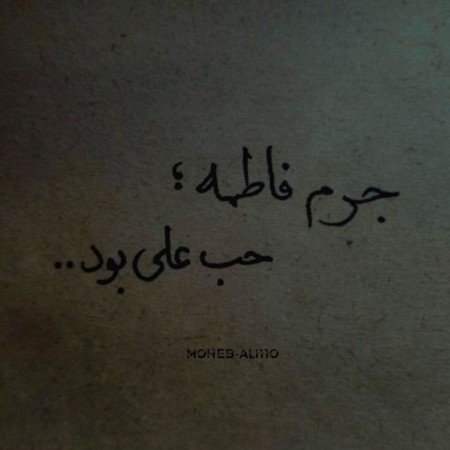 جرم فاطمه ؛
حب علی بود..
MOHEB-ALI110